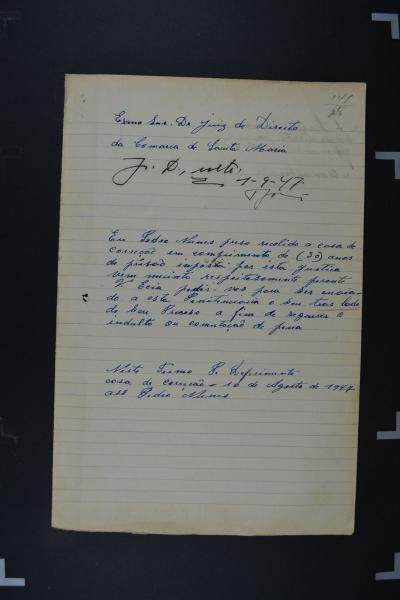 141
Exmo Snr. Dr Juiz de Direito
da Comarca de Santa Maria
J. D., volte.
1-9-47
Eu Pedro Nunes preso recolido a casa de
coreção em comprimento de (30) anos
de prisão imposta por esta justica
vem muinto respeitozamente perante
V. Ecia pedir-vos para ser envia
do a esta Penitenciaria o seu tras lado
de seu Proceso a fim de requerer o
indulto ou comutação de pena
Neste Termo P. Deferimento
casa de coreção - 10 de Agosto de 1947
ass Pedro Nunes